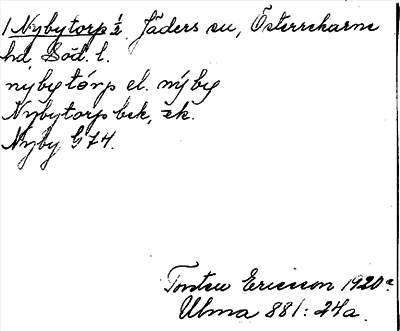 1 Nybytorp 1/2. Jäders sn, Österrekarne
hd, Söd. l.
nybytórp el. nýby
Nybytorp bek, ek.
Nyby G 74.
Torsten Ericsson 1920
Ulma 881: 24a.